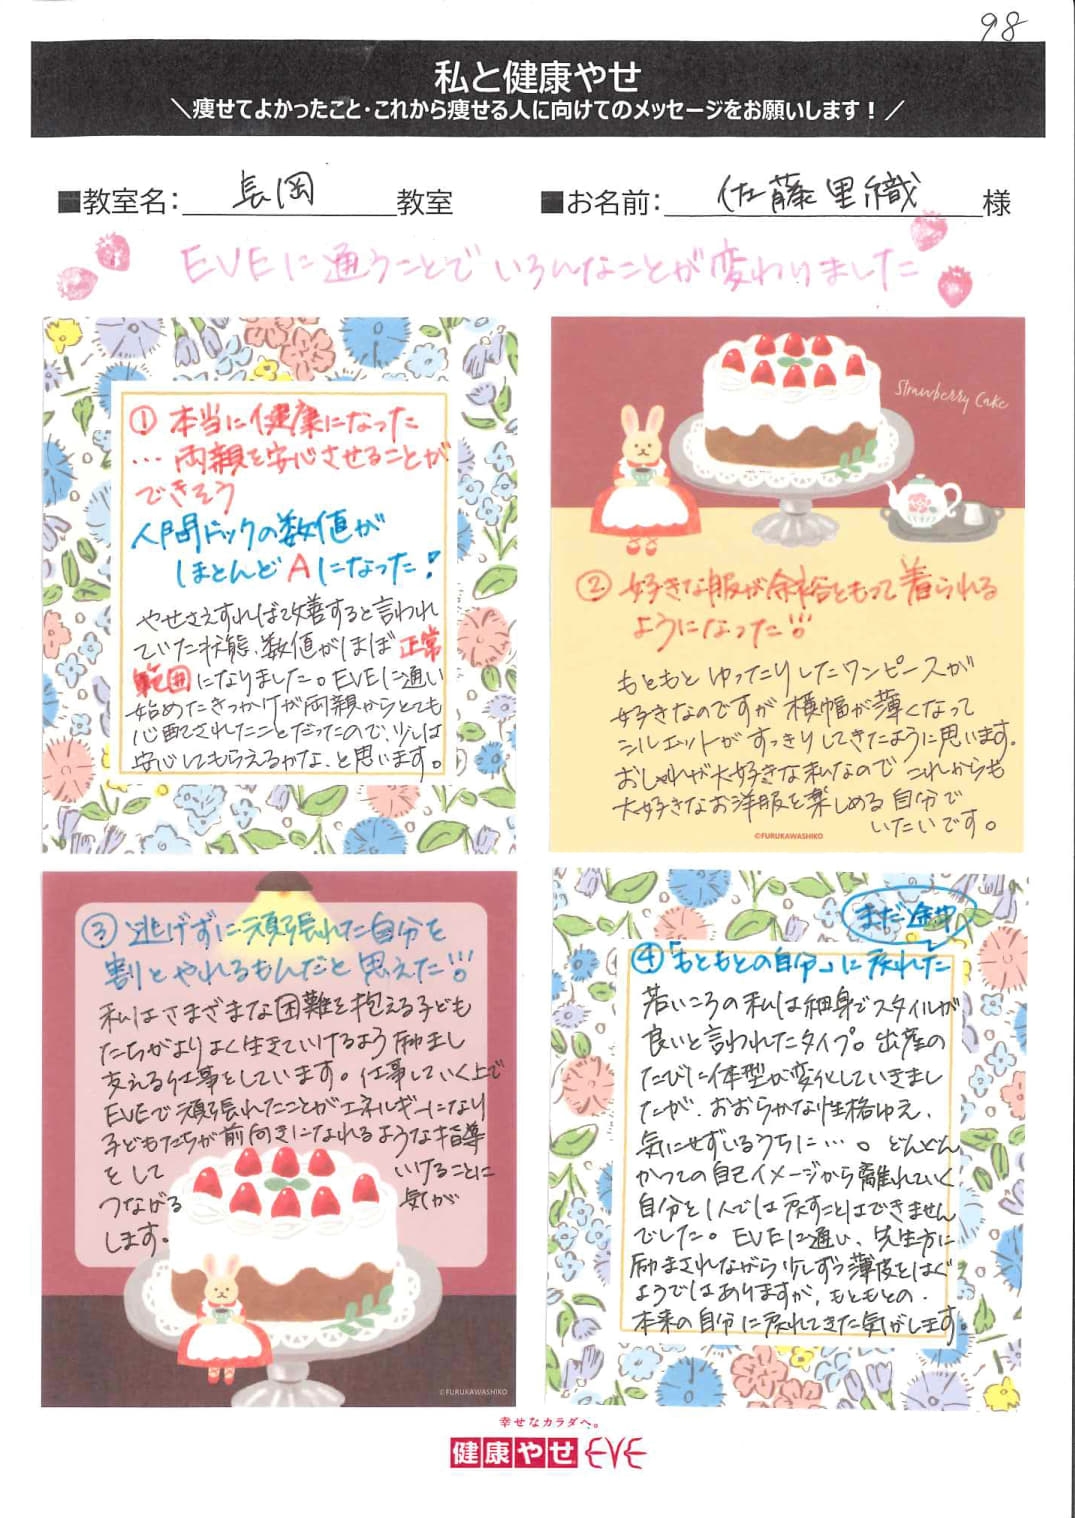 98
私と健康やせ
＼痩せてよかったこと・これから痩せる人に向けてのメッセージをお願いします！／
■教室名： 長岡 教室
■お名前： 佐藤里織 様
EVEに通うことでいろんなことが変わりました
① 本当に健康になった
… 両親を安心させることが
できそう
人間ドックの数値が
ほとんどAになった！
やせさえすれば改善すると言われ
ていた状態、数値がほぼ正常
範囲になりました。EVEに通い
始めたきっかけが両親からとても
心配されたことだったので、少しは
安心してもらえるかな、と思います。
Strawberry Cake
② 好きな服が余裕をもって着られる
ようになった!!!
もともとゆったりしたワンピースが
好きなのですが横幅が薄くなって
シルエットがすっきりしてきたように思います。
おしゃれが大好きな私なので これからも
大好きなお洋服を楽しめる自分で
いたいです。
©FURUKAWASHIKO
③ 逃げずに頑張れた自分を
割とやれるもんだと思えた!!!
私はさまざまな困難を抱える子ども
たちがよりよく生きていけるよう励まし
支える仕事をしています。仕事していく上で
EVEで頑張れたことがエネルギーになり
子どもたちが前向きになれるような指導
をして いけることに
つながる 気が
します。
©FURUKAWASHIKO
まだ途中
④「もともとの自分」に戻れた
若いころの私は細身でスタイルが
良いと言われたタイプ。出産の
たびに体型が変化していきまし
たが、おおらかな性格ゆえ、
気にせずいるうちに…。どんどん
かつての自己イメージから離れていく
自分を1人では戻すことはできません
でした。EVEに通い、先生方に
励まされながら少しずつ薄皮をはぐ
ようではありますが、もともとの・
本来の自分に戻れてきた気がします。
幸せなカラダへ。
健康やせ EVE